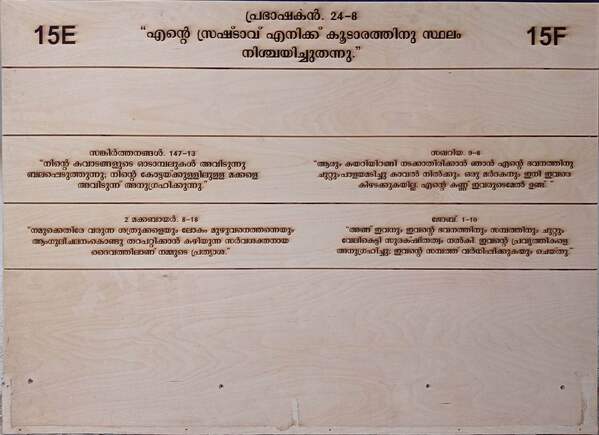 പ്രഭാഷകൻ. 24-8
15E
"എന്റെ സ്രഷ്ടാവ് എനിക്ക് കൂടാരത്തിനു സ്ഥലം
15F
നിശ്ചയിച്ചുതന്നു."
സങ്കീർത്തനങ്ങൾ. 147-13
"നിന്റെ കവാടങ്ങളുടെ ഓടാമ്പലുകൾ അവിടുന്നു
ബലപ്പെടുത്തുന്നു; നിന്റെ കോട്ടയ്ക്കുള്ളിലുള്ള മക്കളെ
അവിടുന്ന് അനുഗ്രഹിക്കുന്നു."
സഖറിയ. 9-8
"ആരും കയറിയിറങ്ങി നടക്കാതിരിക്കാൻ ഞാൻ എന്റെ ഭവനത്തിനു
ചുറ്റും പാളയമടിച്ചു കാവൽ നിൽക്കും. ഒരു മർദകനും ഇനി ഇവരെ
കീഴടക്കുകയില്ല. എന്റെ കണ്ണ് ഇവരുടെമേൽ ഉണ്ട്."
2 മക്കബായർ. 8-18
"നമുക്കെതിരേ വരുന്ന ശത്രുക്കളെയും ലോകം മുഴുവനെത്തന്നെയും
ആംഗുലീചലനംകൊണ്ടു തറപറ്റിക്കാൻ കഴിയുന്ന സർവശക്തനായ
ദൈവത്തിലാണ് നമ്മുടെ പ്രത്യാശ."
ജോബ്. 1-10
"അങ്ങ് ഇവനും ഇവന്റെ ഭവനത്തിനും സമ്പത്തിനും ചുറ്റും
വേലികെട്ടി സുരക്ഷിതത്വം നൽകി. ഇവന്റെ പ്രവൃത്തികളെ
അനുഗ്രഹിച്ചു; ഇവന്റെ സമ്പത്ത് വർധിപ്പിക്കുകയും ചെയ്തു."